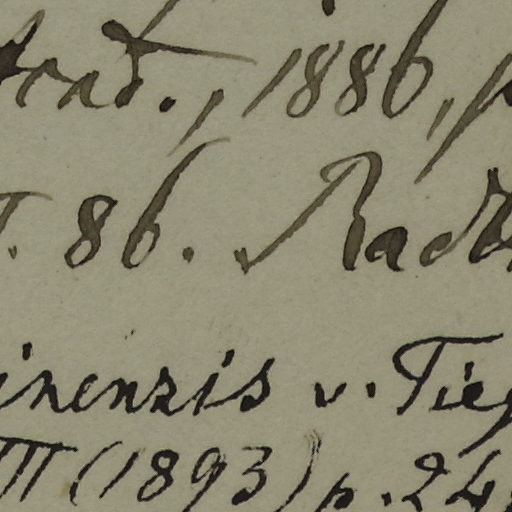 Acad., 1886, p
T. 86. Radlk
inensis v. Tieg
III (1893) p. 24